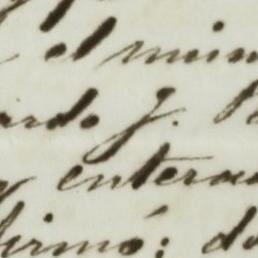 el mism
ardo J.
y enterad
firmó: do